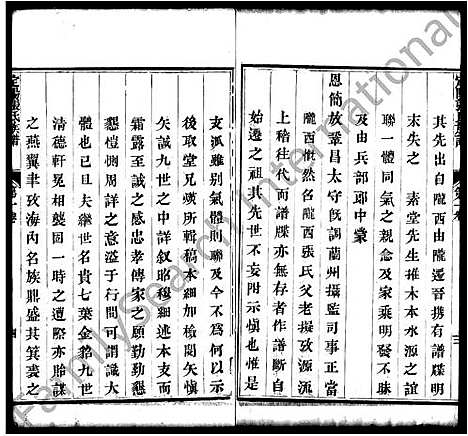 其先出自隴西由隴遷晉携有譜牒明
末失之　素堂先生推木本水源之誼
聯一體同氣之親念及家乘明發不昧
及由兵部郎中蒙
恩簡放鞏昌太守旣調蘭州攝監司事正當
隴西慨然名隴西張氏父老擬攷源流
上稽往代而譜牒亦無存者作譜斷自
始遷之祖其先世不妄附示愼也惟是
支派雖別氣體則聯及今不爲何以示
後取堂兄
所輯稿本細加檢閱矢愼
矢誠九世之中詳敘昭穆細述本支而
霜露至誠之感忠孝傳家之願勤勤懇
懇愷惻周詳之意溢于行間可謂識大
體也已且夫繼世名貴七葉金貂九世
清德軒冕相襲固一時之遭際亦胎謀
之燕翼聿攷海內名族鼎盛其箕裘之
三
四
FamilySearch International